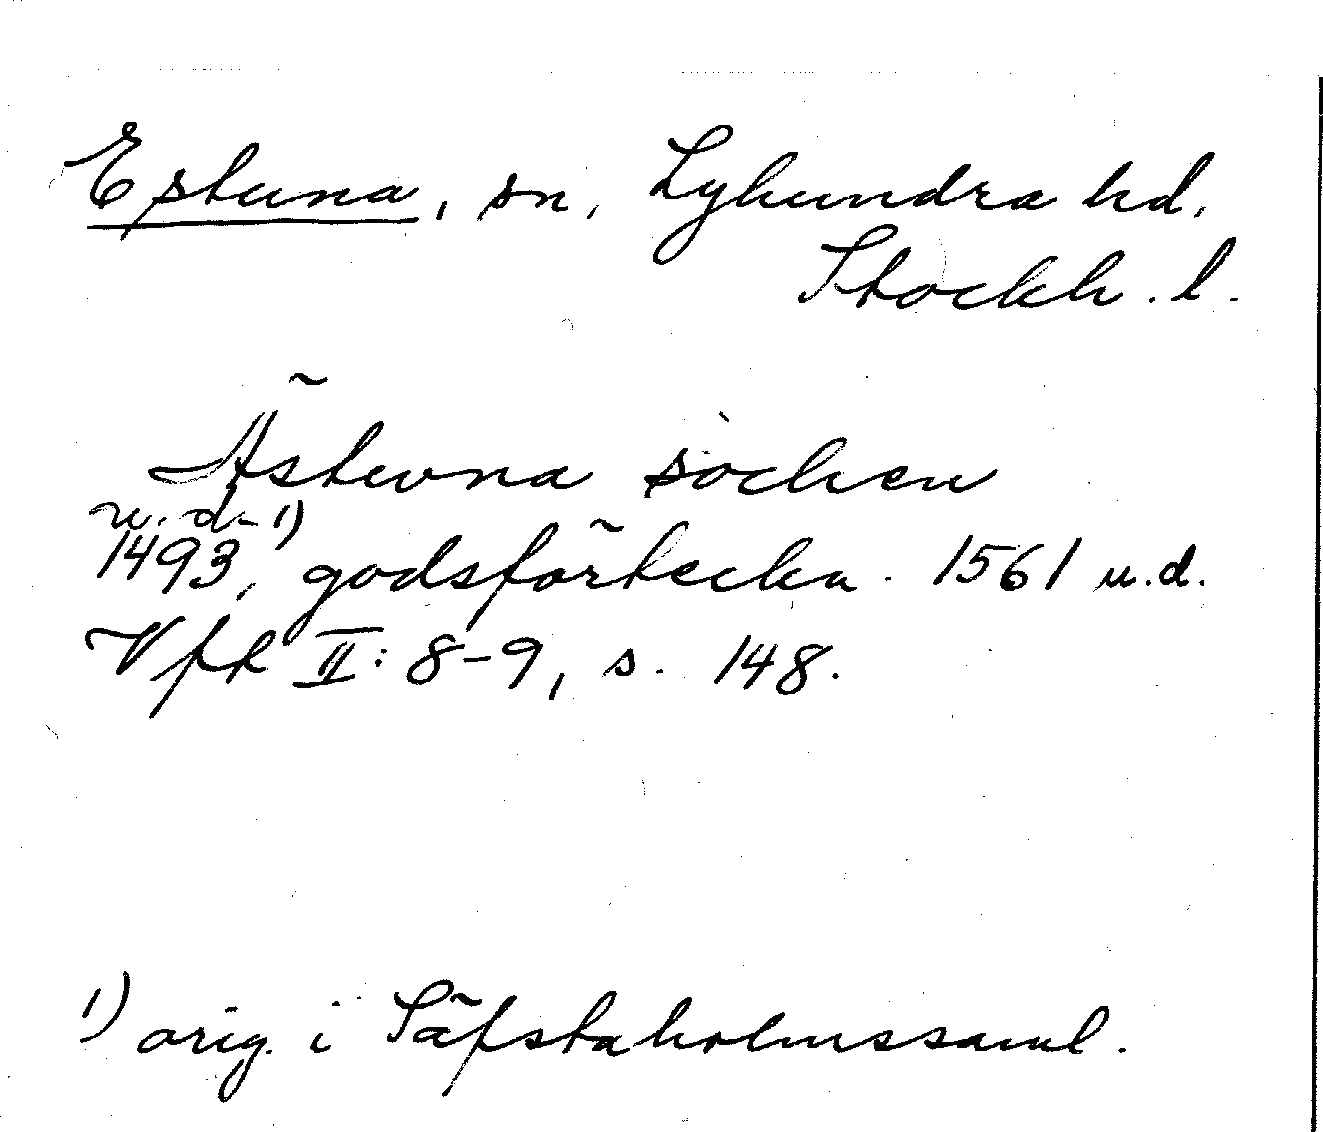 Estuna, sn, Lyhundra hd,
Stockh. l.
Ästwna sochen
u. d. 1)
1493, godsförteckn. 1561 u.d.
Vfk II: 8-9, s. 148.
1) orig. i Säfstaholmssaml.